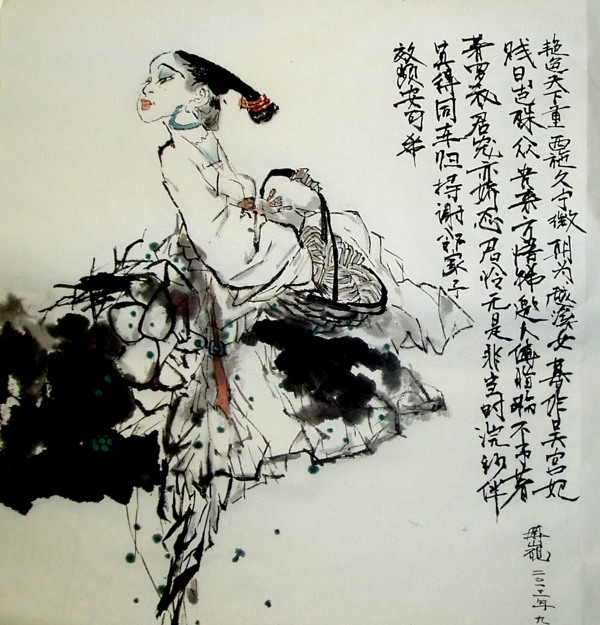 艳色天下重西施久宁微朝为越溪女暮作吴宫妃
贱日岂殊众贵来方悟稀邀人傅脂粉不自著
罗衣君宠亦娇态君怜无是非当时浣纱伴
莫得同车归持谢邻家子
效颦安可希
二〇一二年九